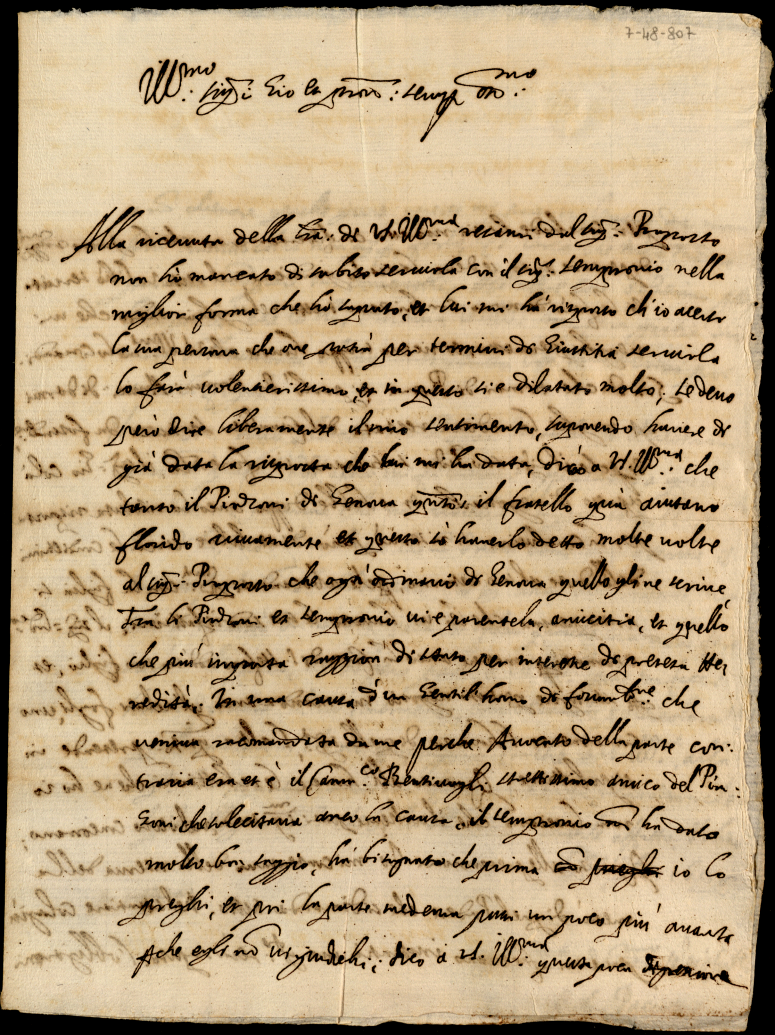 7-48-807
Ill.mo Sig.r Zio et pron: semp. oss.mo
Alla ricevuta della l.ra di V.S. Ill.ma resami dal sig.r Proposto
non hò mancato di subito servirla con il sig.r Sempronio nella
miglior forma che hò saputo, et lui mi hà risposto ch'io accerti
la sua persona che ove potrà per termini di Giustitia servirla
lo farà volentierissimo, et in questo si è dilatato molto; se devo
però dire liberamente il mio sentimento, suponendo havere di
già data la risposta che lui mi ha data, dico a V.S. Ill.ma che
tanto il Pinzoni di Genova q.nto il fratello quà aiutano
Florido vivamente et questo sò haverlo detto molte volte
al sig.r Proposto che ogni ordinario di Genova quello gli ne scrive,
Fra li Pinzoni et Sempronio vi è parentela, amicitia, et quello
che più importa raggion di stato per interesse di pretesa He-
redità. In una causa d'un Gentil'homo di che
veniva racomandata da me perche Avocato della parte con:
traria era et è il Cavn.co Bentivogli strettissimo amico del Pin:
zoni che solecitava anco la causa, il Sempronio non ha dato
molto bon saggio, ha bisognato che prima io lo
preghi, et poi la parte medema passi un poco più avanti
Ache egli nò vi giudichi; dico a V.S. Ill.ma questa poca